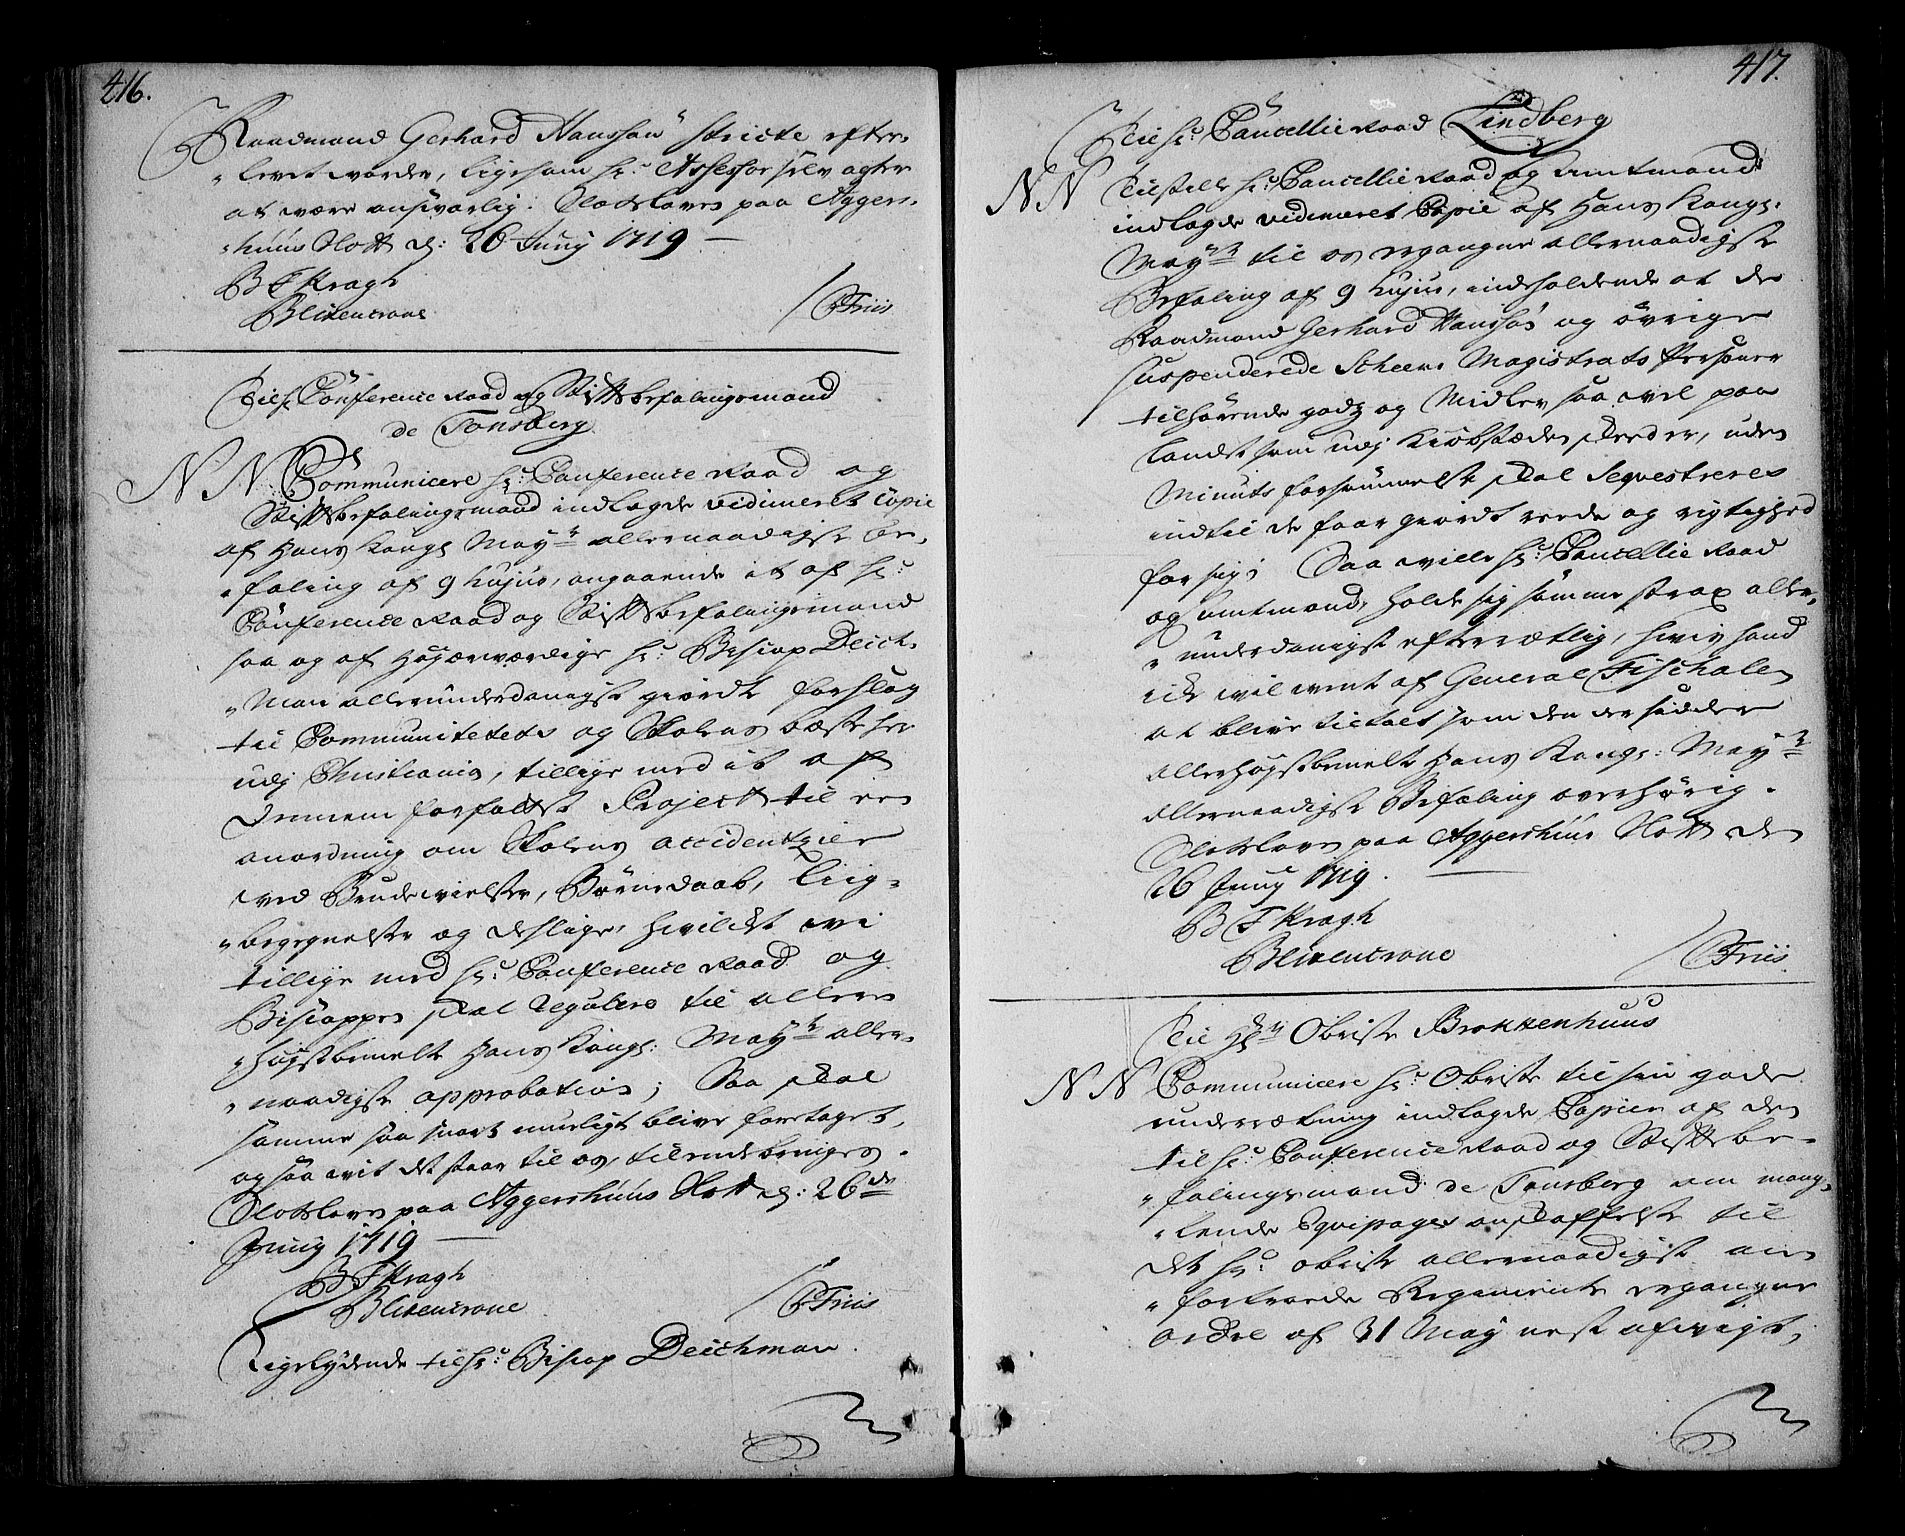 416.
Raadmand Gerhard Hanssøn stricte efter-
levet vorder, ligesom hr: Assessor selv agter
at være ansvarlig. Slodsloven paa Aggers-
huus Slott d: 26 Junij 1719
B T Kragh
Blixencrone
/ CFriis
Til hr Conference Raad og Stiftsbefalingsmand
de Tonsberg
N N Communicere hr: Conference Raad og
Stiftsbefalingsmand indlagde vidimeret Copie
af Hans Kongl May.ts allernaadigste be-
faling af 9 hujus, angaaende it af hr:
Conference Raad og Stiftsbefalingsmand
saa og af Højærværdige hr: Biscop Deich-
man allerunderdanigst giordt forslag
til Communitetets og Skolens beste her
udj Christiania, tillige med it af
dennem forfattet Project til en
anordning om Skolens accidentzier
ved Brudevielser, Børnedaab, Liig-
begegnelser og deslige, hvilket vi
tillige med hr: Conference Raad og
Biscoppen skal regulere til aller-
højstbemelte Hans Kongl: May.ts aller-
naadigste approbation; Saa skal
samme saa snart mueligt blive foretaget,
og saa vit det staar til os, tilendebringes.
Slodsloven paa Aggershuus Slott d: 26de
Junij 1719
B T Kragh
Blixencrone
/ CFriis
Ligelydende til hr: Biscop Deichman.
417.
Til hr: Cancellie Raad Lindberg
N N Tilstille hr: Cancellie Raad og Amtmand
indlagde vidimeret Copie af Hans Kongl.
May.ts til os ergangne allernaadigste
Befaling af 9 hujus, indeholdende at de
Raadmand Gerhard Hanssøn og øvrige
suspenderede Scheens Magistrats Persohner
tilhørende godz og Midler saa vel paa
Landet som udj Kiøbstæden skeeder, uden
Minuts forsømmelse skal Seqvestreres
indtil de faar giordt reede og rigtighed
for sig; Saa ville hr: Cancellie Raad
og Amtmand, holde sig samme strax aller-
underdanigst efterretlig, hvis hand
icke vil vent af General Fischalen
at blive tiltalt som den der sidder
allerhøjstbemelte Hans Kongl: May.ts
allernaadigste Befaling overhørig.
Slodsloven paa Aggershuus Slott den
26 Junij 1719.
B T Kragh
Blixencrone
/ CFriis
Til Hr: Obriste Brokkenhuus
N N Communicere hr: Obriste til sin gode
underrætning indlagde Copier af den
til hr: Conference Raad og Stiftsbe-
falingsmand de Tonsberg om mang-
lende Eqvipages anskaffelse til
det hr: Obriste allernaadigst an-
fortroede Regimente ergangne
ordre af 31 May nest afvigt,